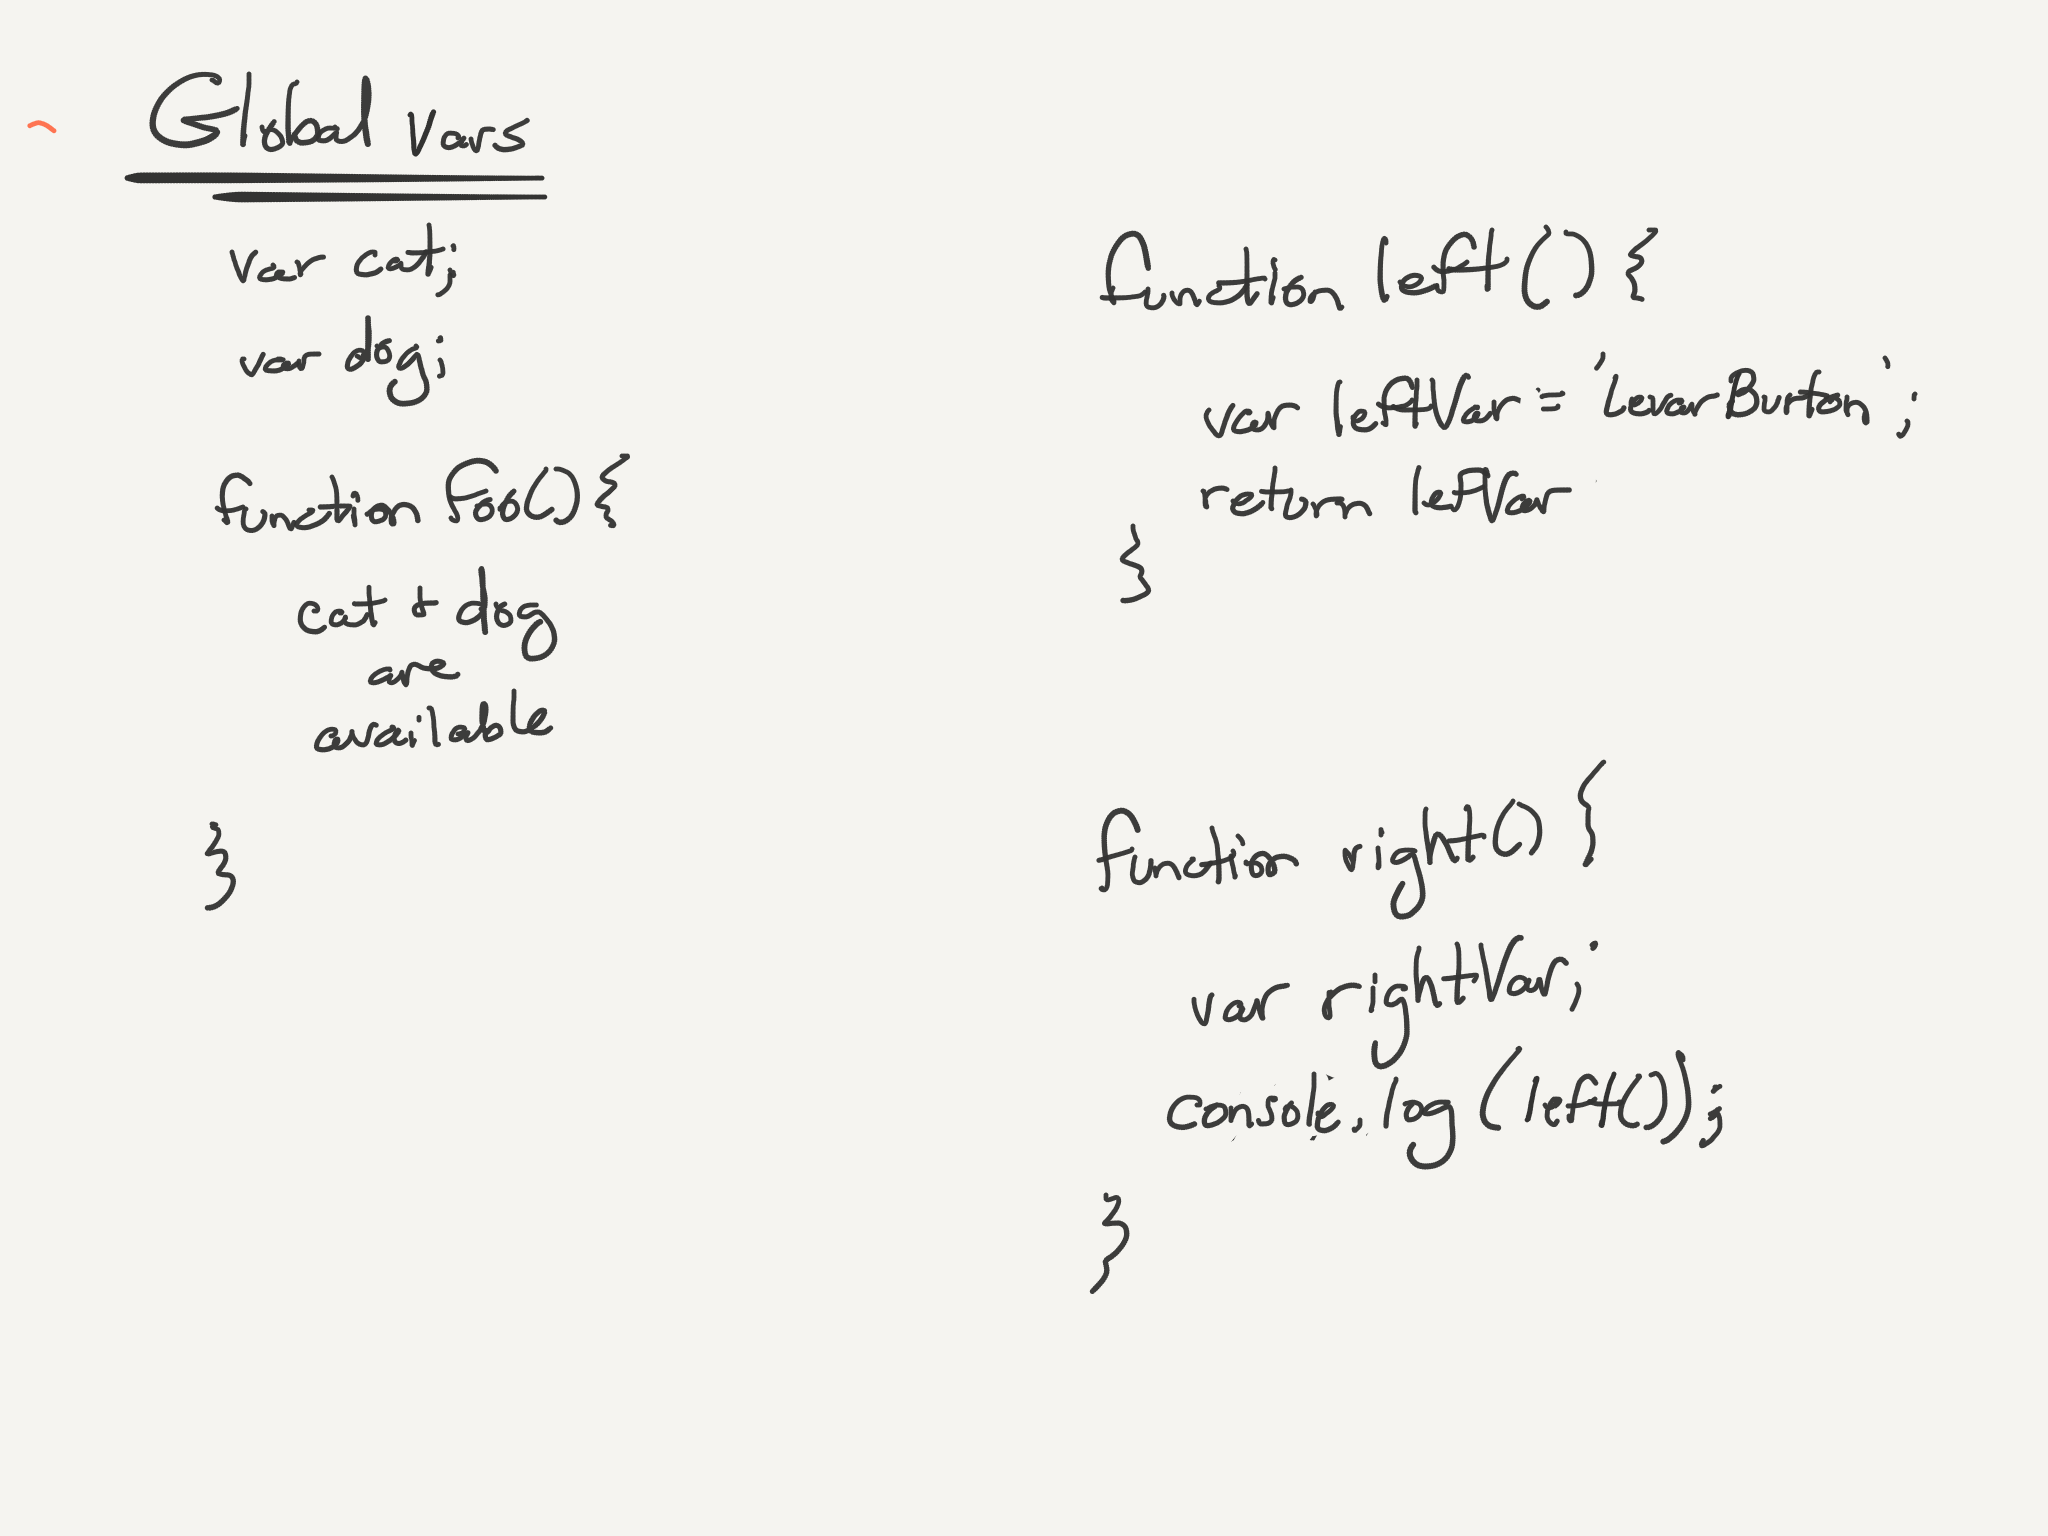 Global Vars
var cat;
var dog;
function foo() {
cat + dog
are
available
}
function left() {
var leftVar = 'LevarBurton';
return leftVar
}
function right() {
var rightVar;
console.log(left());
}